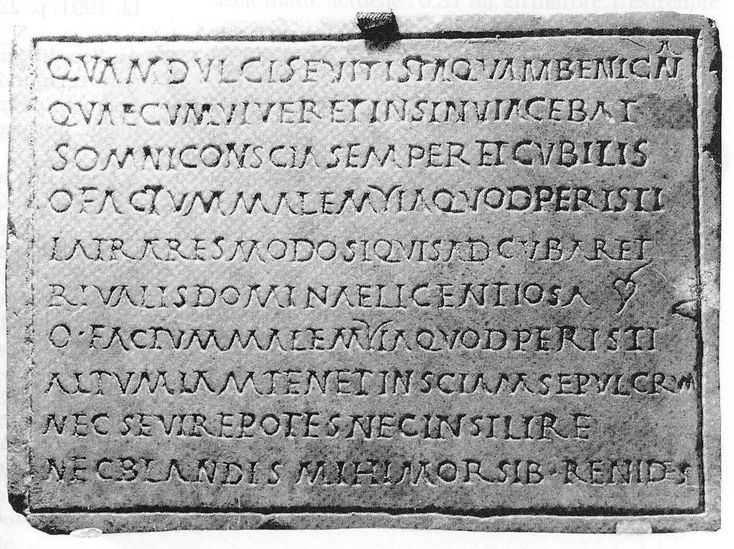 QVAMDVLCISFVITISTAQVAMBENIGNA
QVAECVMVIVERETINSINVIACEBAT
SOMNICONSCIASEMPERETCVBILIS
OFACTVMMALEMYIAQVODPERISTI
LATRARESMODOSIQVISADCVBARET
RIVALISDOMINAELICENTIOSA
O·FACTVMMALEMYIAQVODPERISTI
ALTVMIAMTENETINSCIAMSEPVLCRVM
NECSEVIREPOTESNECINSILIRE
NECBLANDISMIHIMORSIB·RENIDES